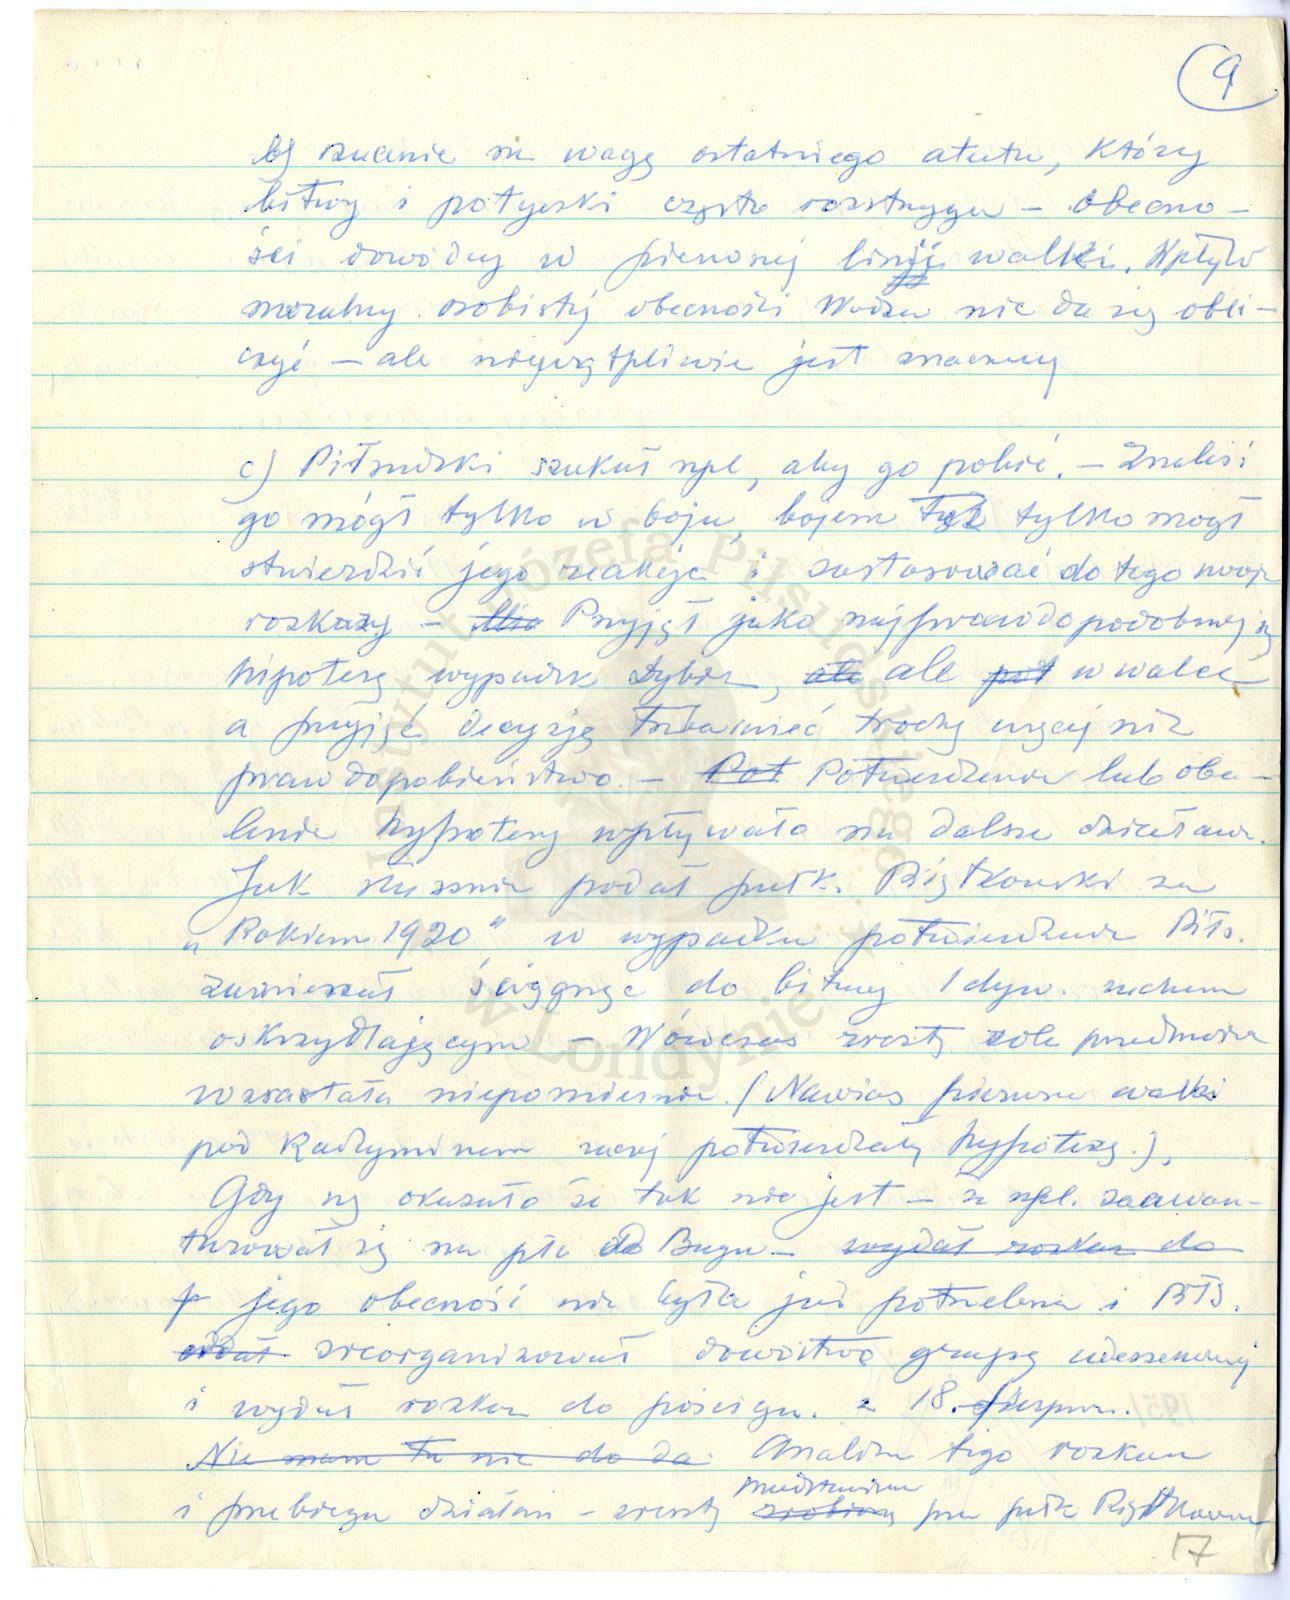 9
b) rzucenie na wagę ostatniego atutu, który
bitwy i potyczki często rozstrzyga – obecno-
ści dowódcy w pierwszej linji walki. Wpływ
moralny osobistej obecności Wodza nie da się obli-
czyć – ale niewątpliwie jest znaczny
c) Piłsudski szukał npl, aby go pobić. – Znaleść
go mógł tylko w boju, bojem też tylko mógł
stwierdzić jego reakcje i zastosować do tego swoje
rozkazy – Przyjął jako najprawdopodobniejszą
hipotezę wypadek, ale ale w walce
a przyjąć decyzję trzeba mieć trochę więcej niż
prawdopobieństwo. – Pot Potwierdzenie lub oba-
lenie hypotezy wpływało na dalsze działanie.
Jak słusznie podał pułk. Piątkowski za
„Rokiem 1920" w wypadku potwierdzenia Piłs.
zamierzał ściągnąć do bitwy 1 dyw. ruchem
oskrzydlającym – Wówczas zresztą rola przedmościa
wzrastała niepomiernie. (Nawias pierwsze walki
pod Radzyminem raczej potwierdzały hypotezę.),
Gdy się okazało że tak nie jest – że npl. zaawan-
turował się na płn od Bugu – wydał rozkaz do
p jego obecność nie była już potrzebna i Piłs.
oddał zreorganizował dowództwo grupy uderzeniowej
i wydał rozkaz do pościgu. z 18. sierpnia.
Nie mam tu nic do da Analiza tego rozkazu
przedstawiona
i przebiegu działań – zresztą zrobioną przez pułk Piątkowskiego
17
Instytut Józefa Piłsudskiego
w Londynie
1951